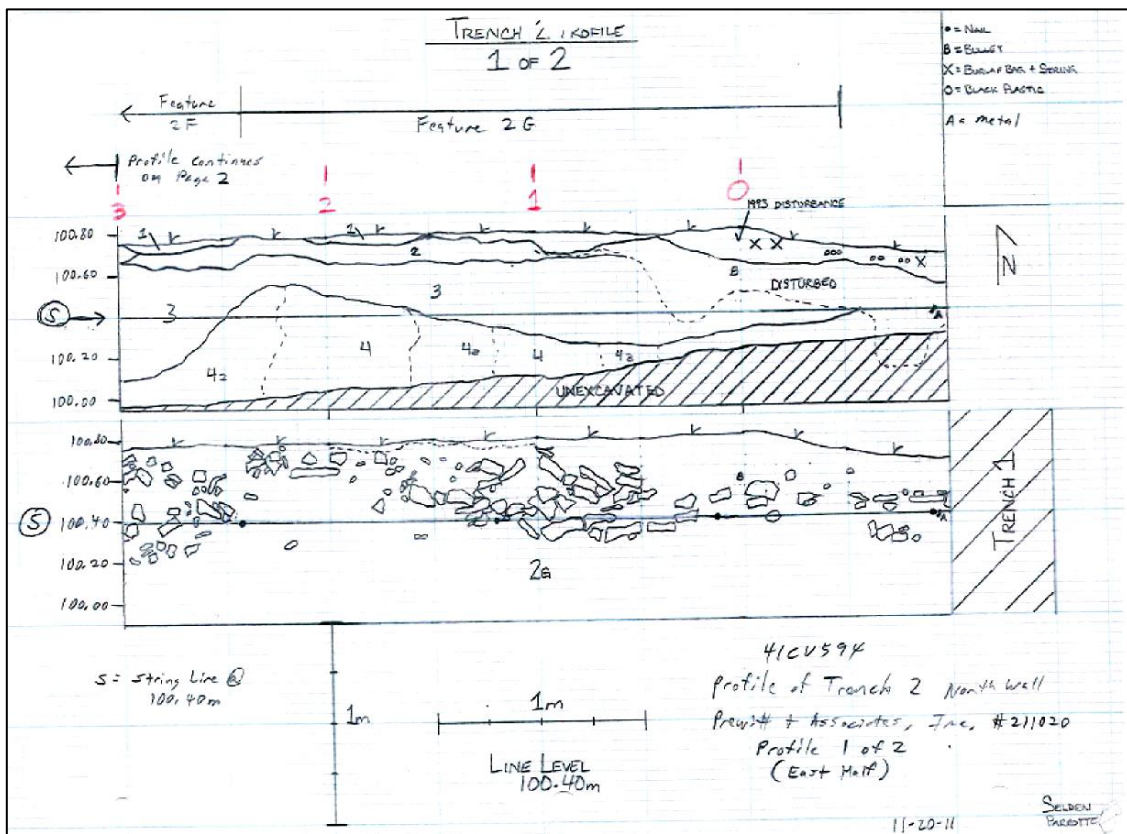 TRENCH 2 PROFILE
1 OF 2
• = NAIL
B = BULLET
X = BURLAP BAG + STRING
O = BLACK PLASTIC
A = metal
Feature
2F
Feature 2G
Profile continues
on Page 2
3
2
1
0
1993 DISTURBANCE
N
100.80
100.60
S
100.20
100.00
1
1
2
3
3
B
X X
X
DISTURBED
A
42
4
42
4
42
UNEXCAVATED
100.80
100.60
S
100.40
100.20
100.00
B
A
2G
TRENCH 1
S = String Line @
100.40m
1m
1m
LINE LEVEL
100.40m
41CV594
Profile of Trench 2 North Wall
Prewitt + Associates, Inc, #211020
Profile 1 of 2
(East Half)
SELDEN
11-20-11